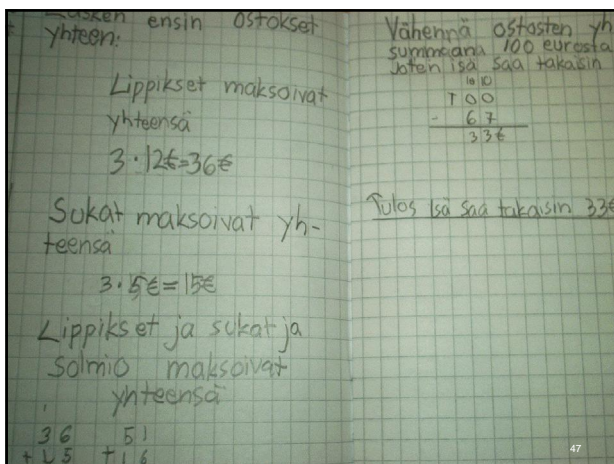 Lasken ensin ostokset
yhteen:
Lippikset maksoivat
yhteensä
3 · 12€=36€
Sukat maksoivat yh-
teensä
3 · 5€ = 15€
Lippikset ja sukat ja
solmio maksoivat
yhteensä
36 51
+15 +16
Vähennä ostosten yh
summaana 100 eurosta
Joten isä saa takaisin
10 10
100
- 67
33€
Tulos Isä saa takaisin 33€
47